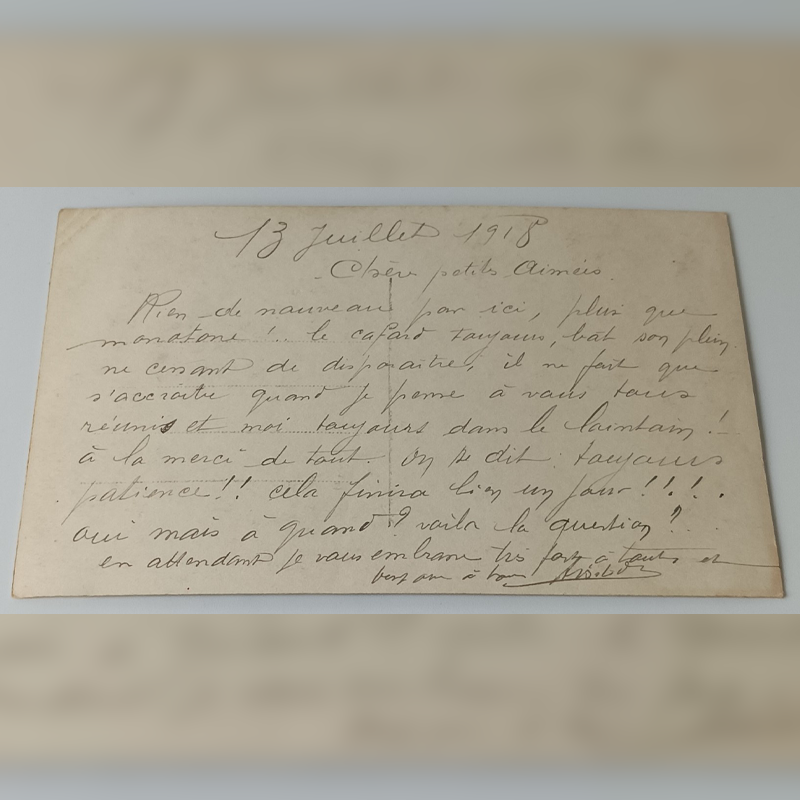 13 Juillet 1918
Chère petits Aimées
Rien de nouveau par ici, plus que
monotone !.. le cafard toujours, bat son plein
ne cessant de disparaitre, il ne fait que
s'accroitre quand je pense à vous tous
réunis et moi toujours dans le lointain !
à la merci de tout. On se dit toujours
patience !! cela finira bien un jour !!.!.
oui mais à quand ? voila la question ?
en attendant je vous embrasse très fort à toutes et
à tous